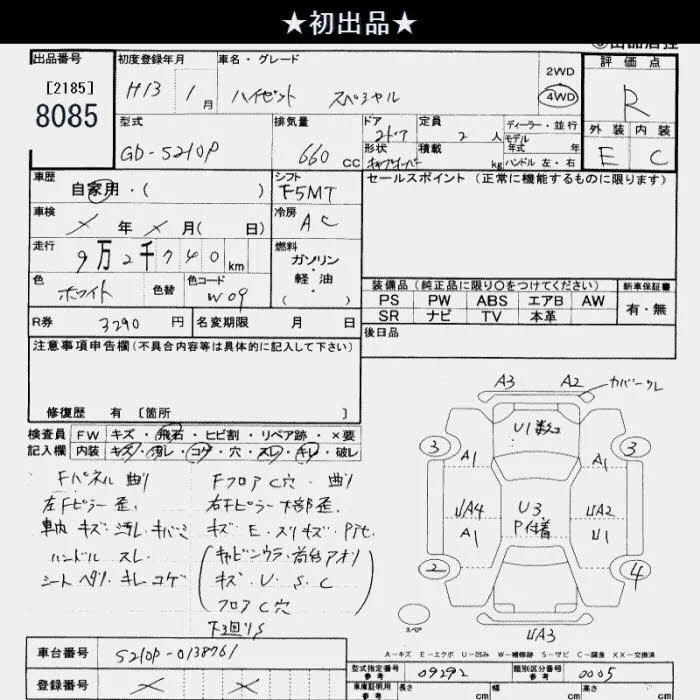 ★初出品★
出品番号
[2185]
8085
初度登録年月
H13 1月
車名・グレード
ハイゼット スペシャル
2WD
4WD
評価点
R
外装 内装
E C
型式
GD-S210P
排気量
660 CC
ドア
2ドア
定員
2 人
形状
積載
kg
ディーラー・並行
モデル年式 年
ハンドル 左・右
車歴
自家用・( )
シフト
F5MT
セールスポイント(正常に機能するものに限ります)
車検
× 年 × 月( 日)
冷房
AC
走行
9万2千740km
燃料
ガソリン
・
軽油
( )
色
ホワイト
色替
色コード
W09
装備品(純正品に限り○をつけてください)
新車保証書
PS PW ABS エアB AW
SR ナビ TV 本革
有・無
R券
3290 円
名変期限 月 日
後日品
注意事項申告欄(不具合内容等は具体的に記入して下さい)
修復歴 有 [箇所 ]
検査員
記入欄
FW キズ・飛石・ヒビ割・リペア跡・×要
内装 キズ・汚レ・コゲ・穴・スレ・キレ・破レ
Fパネル 曲リ
左Fピラー歪
車内 キズ 汚レ キバミ
ハンドル スレ
シート ヘタリ・キレ コゲ
Fフロア C穴・曲リ
右Fピラー下部歪
キズ・E・スリキズ・P
キャビンウラ・荷台アオリ
キズ・U・S・C
フロア C穴
下回リS
A3 A2 カバークレ
U1数コ
3 3
A1 A1
UA4 U3 UA2
A1 P仕着 U1
2 4
スペア
UA3
A－キズ E－エクボ U－凹み W－補修跡 S－サビ C－腐食 XX－交換済
車台番号
S210P-0138761
登録番号
× ×
型式指定番号
参考
09292
類別区分番号
参考
0005
車庫証明用
参考
長さ cm
幅 cm
高さ cm